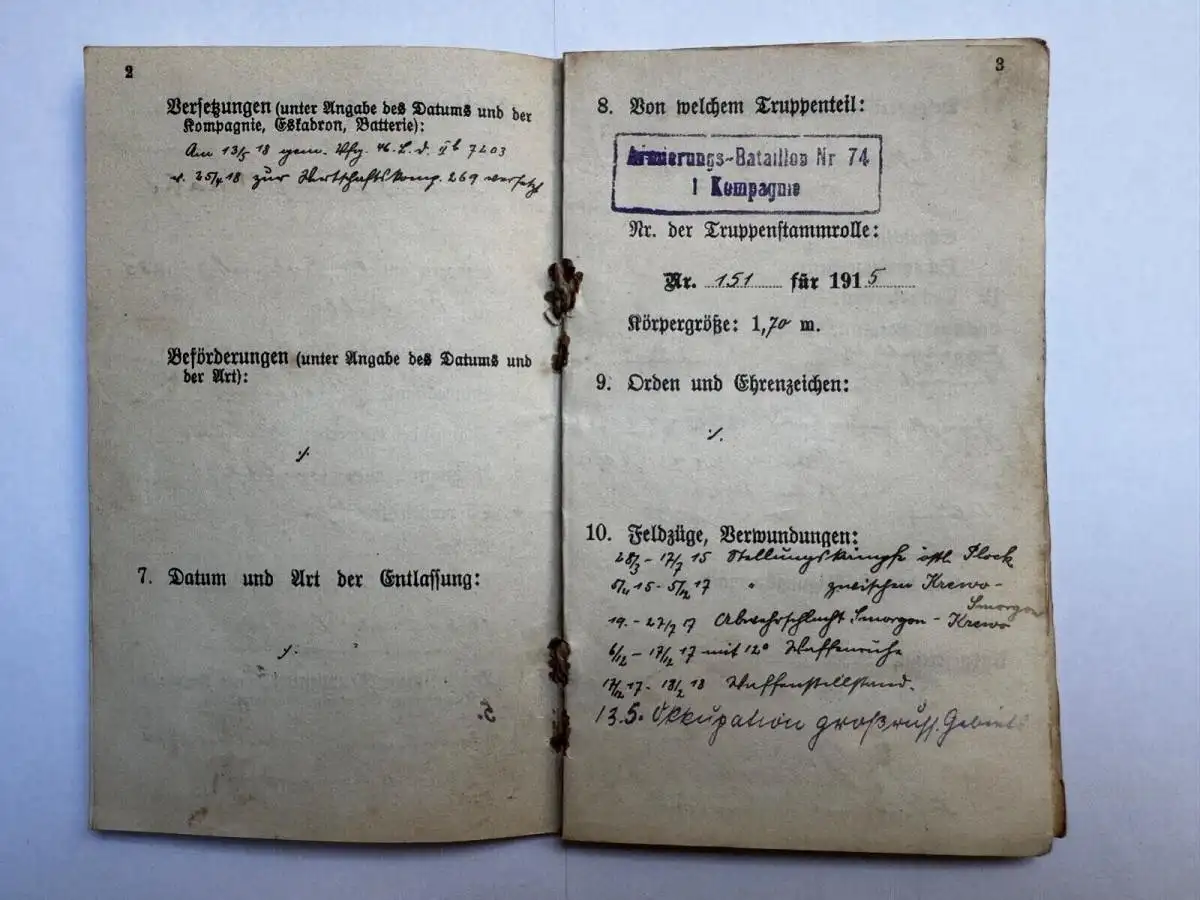 2
Versetzungen (unter Angabe des Datums und der
Kompagnie, Eskadron, Batterie):
Am 13/5 18 gem. Vfg. 7203
v. 25/4 18 zur Wirtschaftskomp. 269 versetzt
Beförderungen (unter Angabe des Datums und
der Art):
./.
7. Datum und Art der Entlassung:
./.
3
8. Von welchem Truppenteil:
Armierungs-Bataillon Nr 74
1 Kompagnie
Nr. der Truppenstammrolle:
Nr. 151 für 1915
Körpergröße: 1,70 m.
9. Orden und Ehrenzeichen:
./.
10. Feldzüge, Verwundungen:
28/3 - 17/7 15 Stellungskämpfe östl. Plock
15 - 5/12 17 " zwischen Krewo-
Smorgon
19. - 27/7 17 Abwehrschlacht Smorgon - Krewo
6/12 - 17/12 17 mit 12° Waffenruhe
17/12 17 - 18/2 18 Waffenstellstand.
13.5. Okkupation großruss. Gebiets